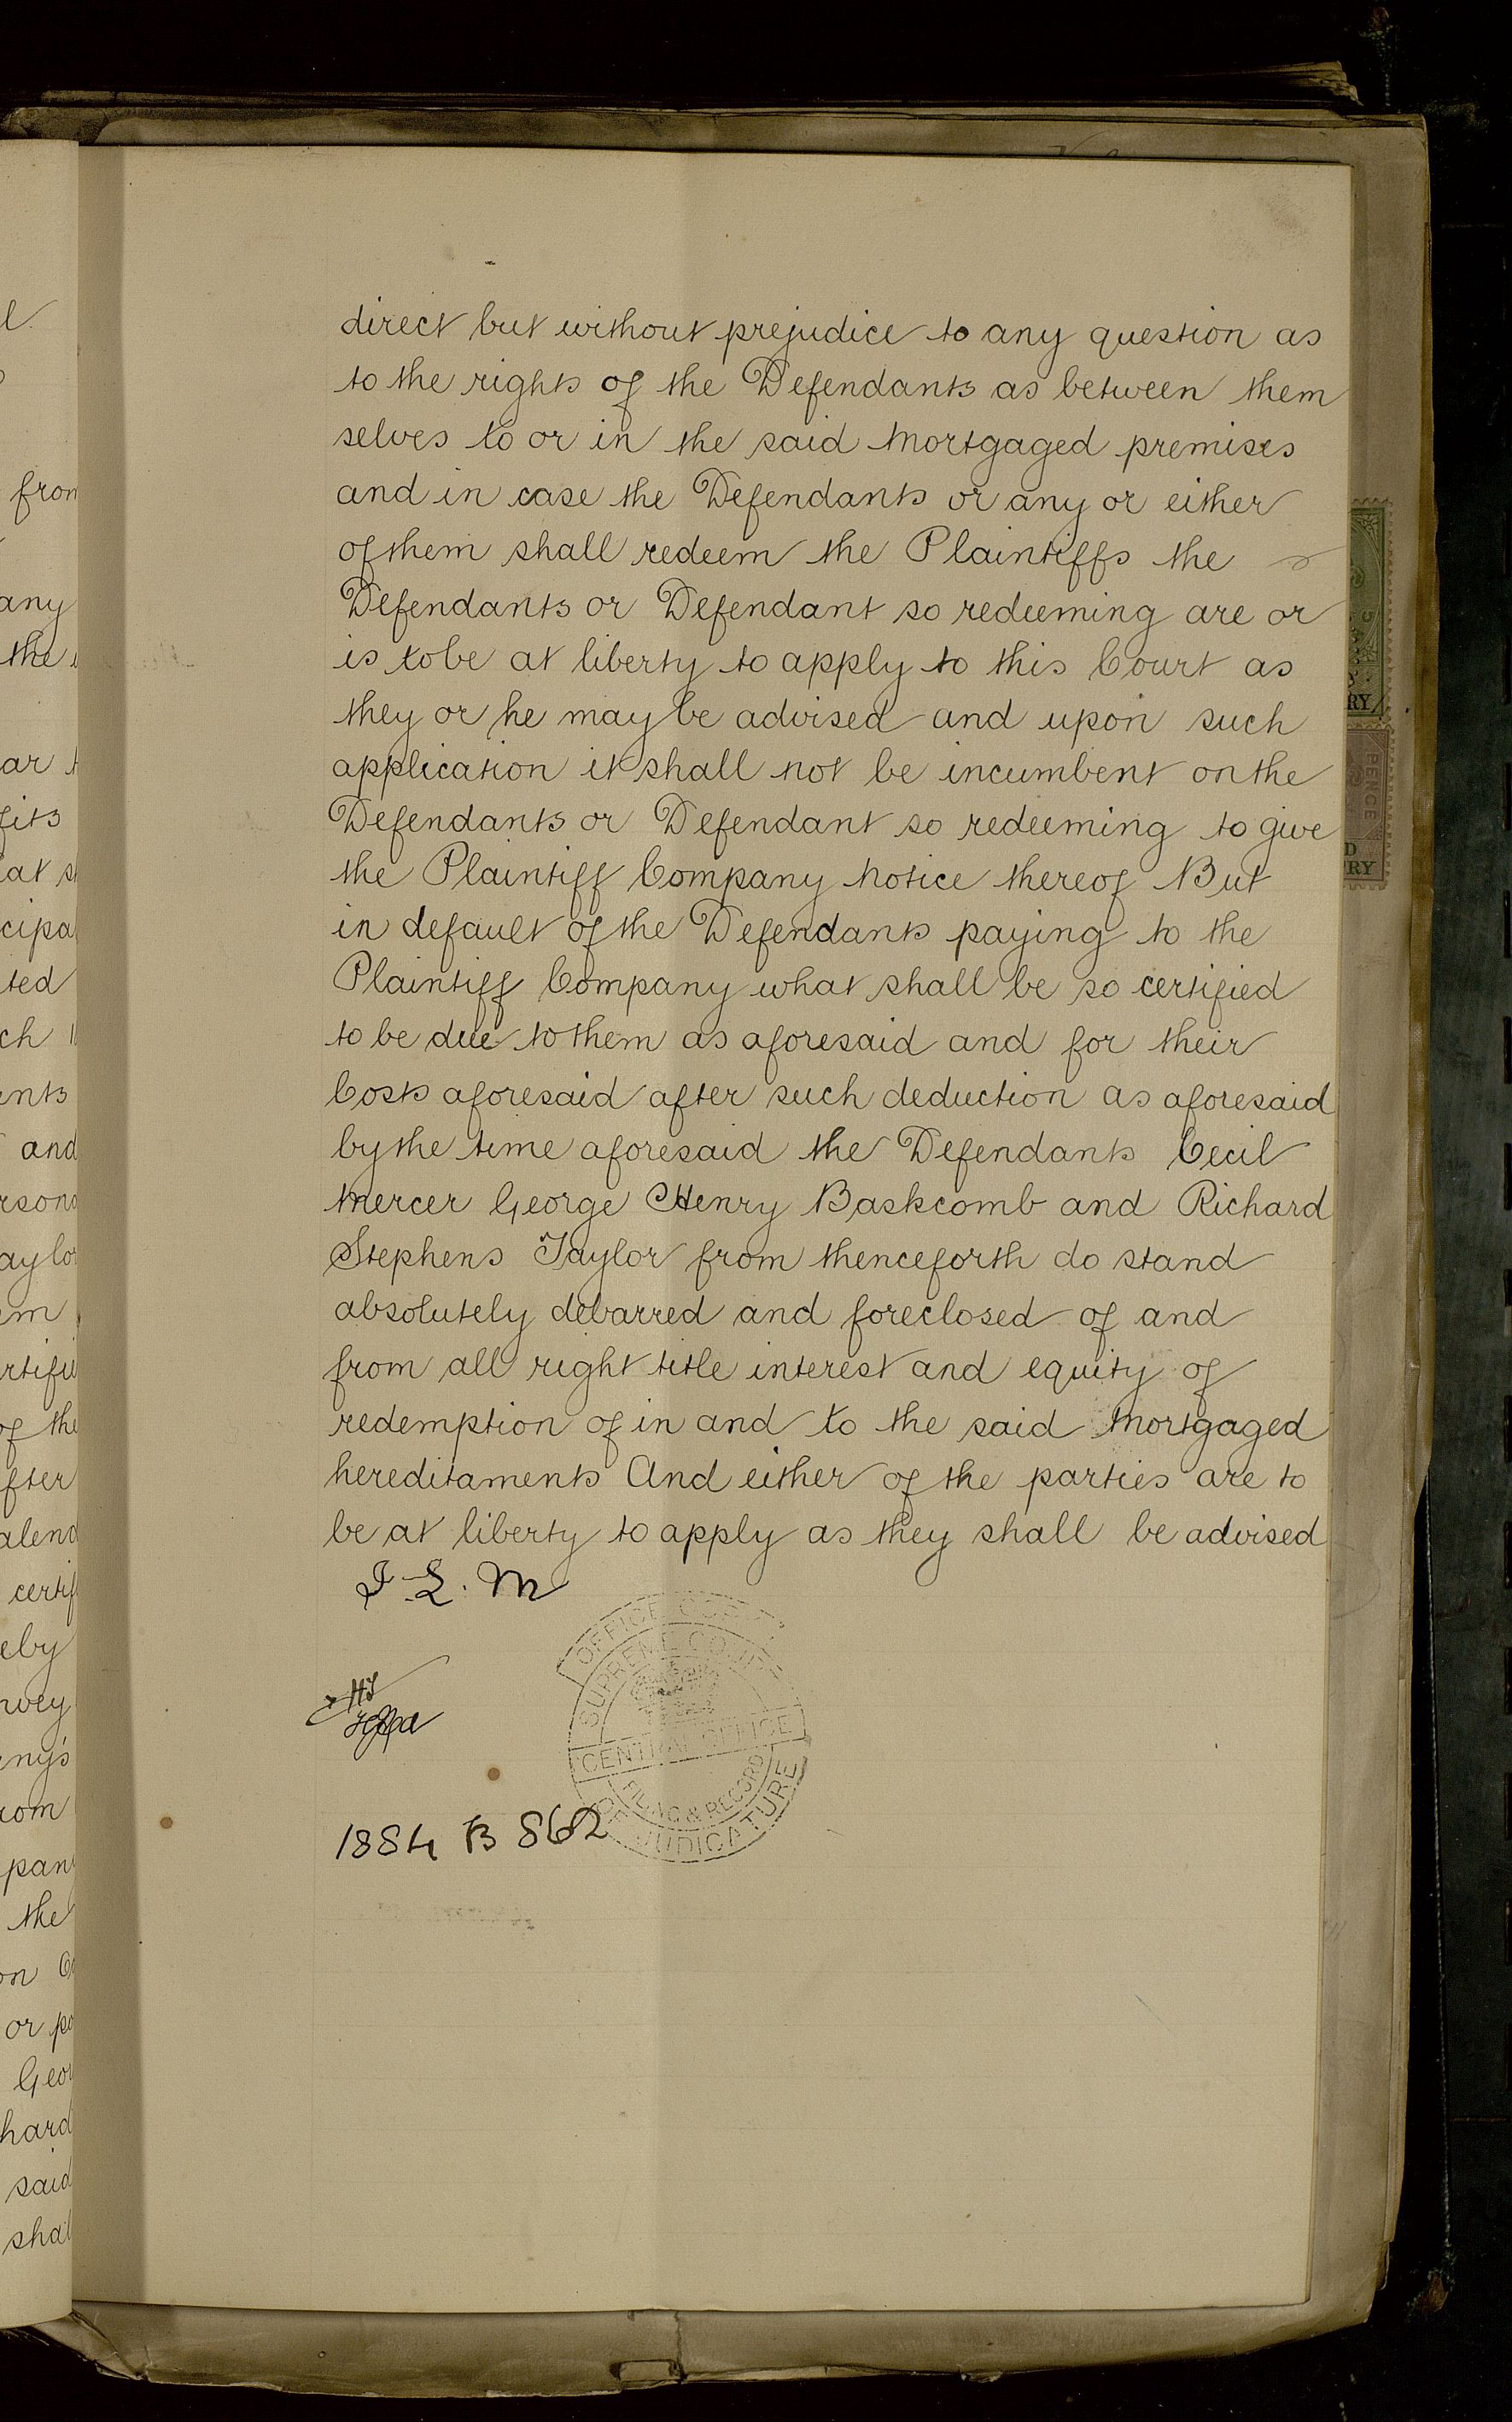 direct but without prejudice to any question as
to the rights of the Defendants as between them
selves to or in the said Mortgaged premises
and in case the Defendants or any or either
of them shall redeem the Plaintiffs the
Defendants or Defendant so redeeming are or
is to be at liberty to apply to this Court as
they or he may be advised and upon such
application it shall not be incumbent on the
Defendants or Defendant so redeeming to give
the Plaintiff Company Notice thereof But
in default of the Defendants paying to the
Plaintiff Company what shall be so certified
to be due to them as aforesaid and for their
Costs aforesaid after such deduction as aforesaid
by the time aforesaid the Defendants Cecil
Mercer George Henry Baskcomb and Richard
Stephens Taylor from thenceforth do stand
absolutely debarred and foreclosed of and
from all right title interest and equity of
redemption of in and to the said Mortgaged
hereditaments And either of the parties are to
be at liberty to apply as they shall be advised
OFFICE COPY
SUPREME COURT
CENTRAL OFFICE
FILING & RECORD
OF JUDICATURE
1884 B 862
from
any
the
fits
ted
and
of the
the
or
said
RY
PENCE
D
RY